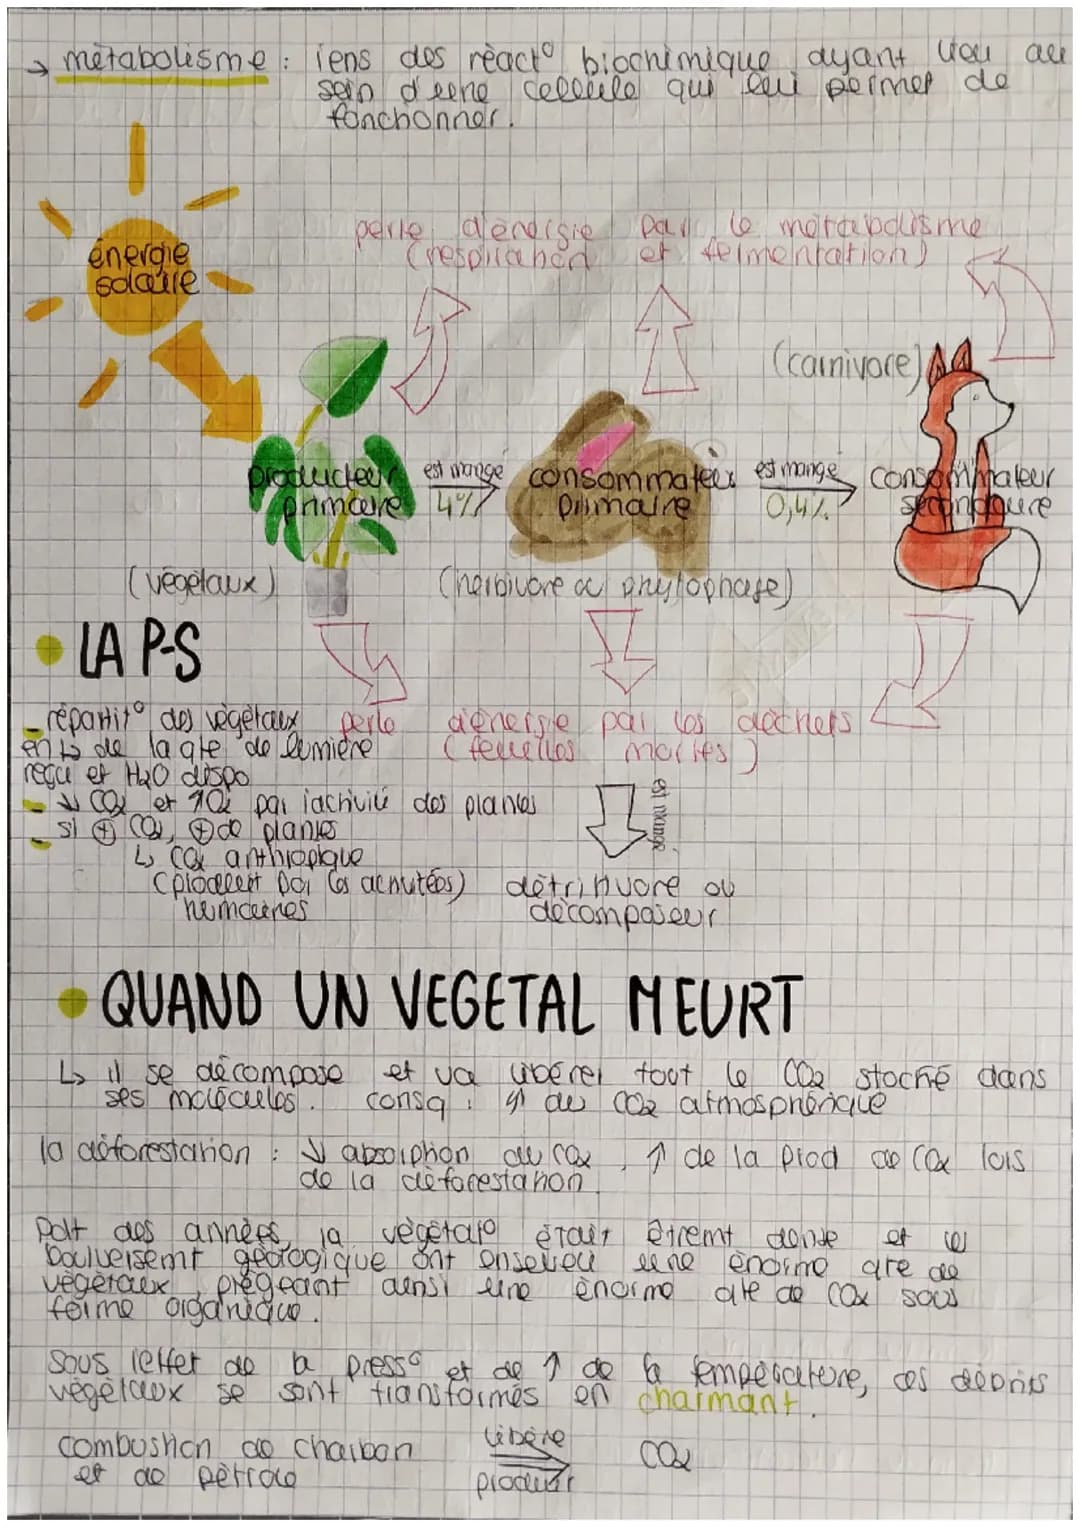 → métabolisme : iens des réact° biochimique ayant lieu au
sein d'une cellule qui lui permet de
fonctionner.
énergie
solaire
perte d'énergie par le métabolisme
(respiration et fermentation)
(carnivore)
producteur
primaire
est mangé
4%
consommateur
primaire
est mangé
0,4%
consommateur
secondaire
(végétaux)
(herbivore ou phytophage)
• LA P-S
perte d'énergie par les déchets
(feuilles mortes)
- répartit° des végétaux
en de la qte de lumière
reçu et H2O dispo
- ↓ CO2 et ↑O2 par l'activité des plantes
- si ⊕ CO2, ⊕ de plantes
↳ CO2 anthropique
(produit par les activitées)
humaines
est mangé
détritivore ou
décomposeur
• QUAND UN VEGETAL MEURT
↳ il se décompose et va libérer tout le CO2 stocké dans
ses molécules. consq : ↑ du CO2 atmosphérique
la déforestation : ↓ absorption du CO2, ↑ de la prod de CO2 lors
de la déforestation.
des années, la végétat° était etremt dense et les
boulversemt géologique ont enseveli une énorme qte de
végétaux, piégeant ainsi une énorme qte de CO2 sous
forme organique.
sous l'effet de la press° et de ↑ de la température, ces débris
végétaux se sont transformés en charmant.
combustion de charbon
et de pétrole
libère
produit
CO2